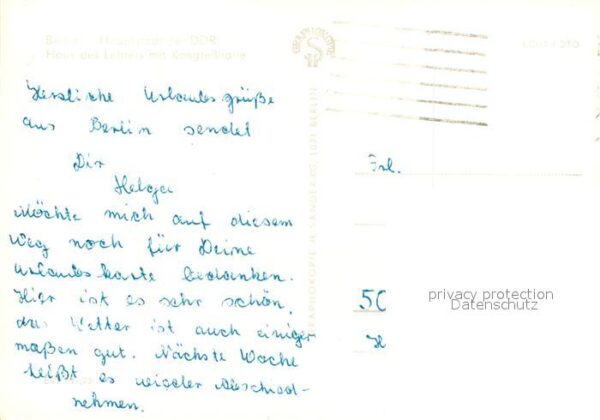 Berlin - Hauptstadt der DDR
Haus des Lehrers mit Kongreßhalle
Herzliche Urlaubsgrüße
aus Berlin sendet
Dir
Helga
Möchte mich auf diesem
Weg noch für Deine
Urlaubskarte bedanken.
Hier ist es sehr schön,
das Wetter ist auch einiger
maßen gut. Nächste Woche
heißt es wieder Abschied-
nehmen.
ECHT FOTO
Frl.
50
privacy protection
Datenschutz